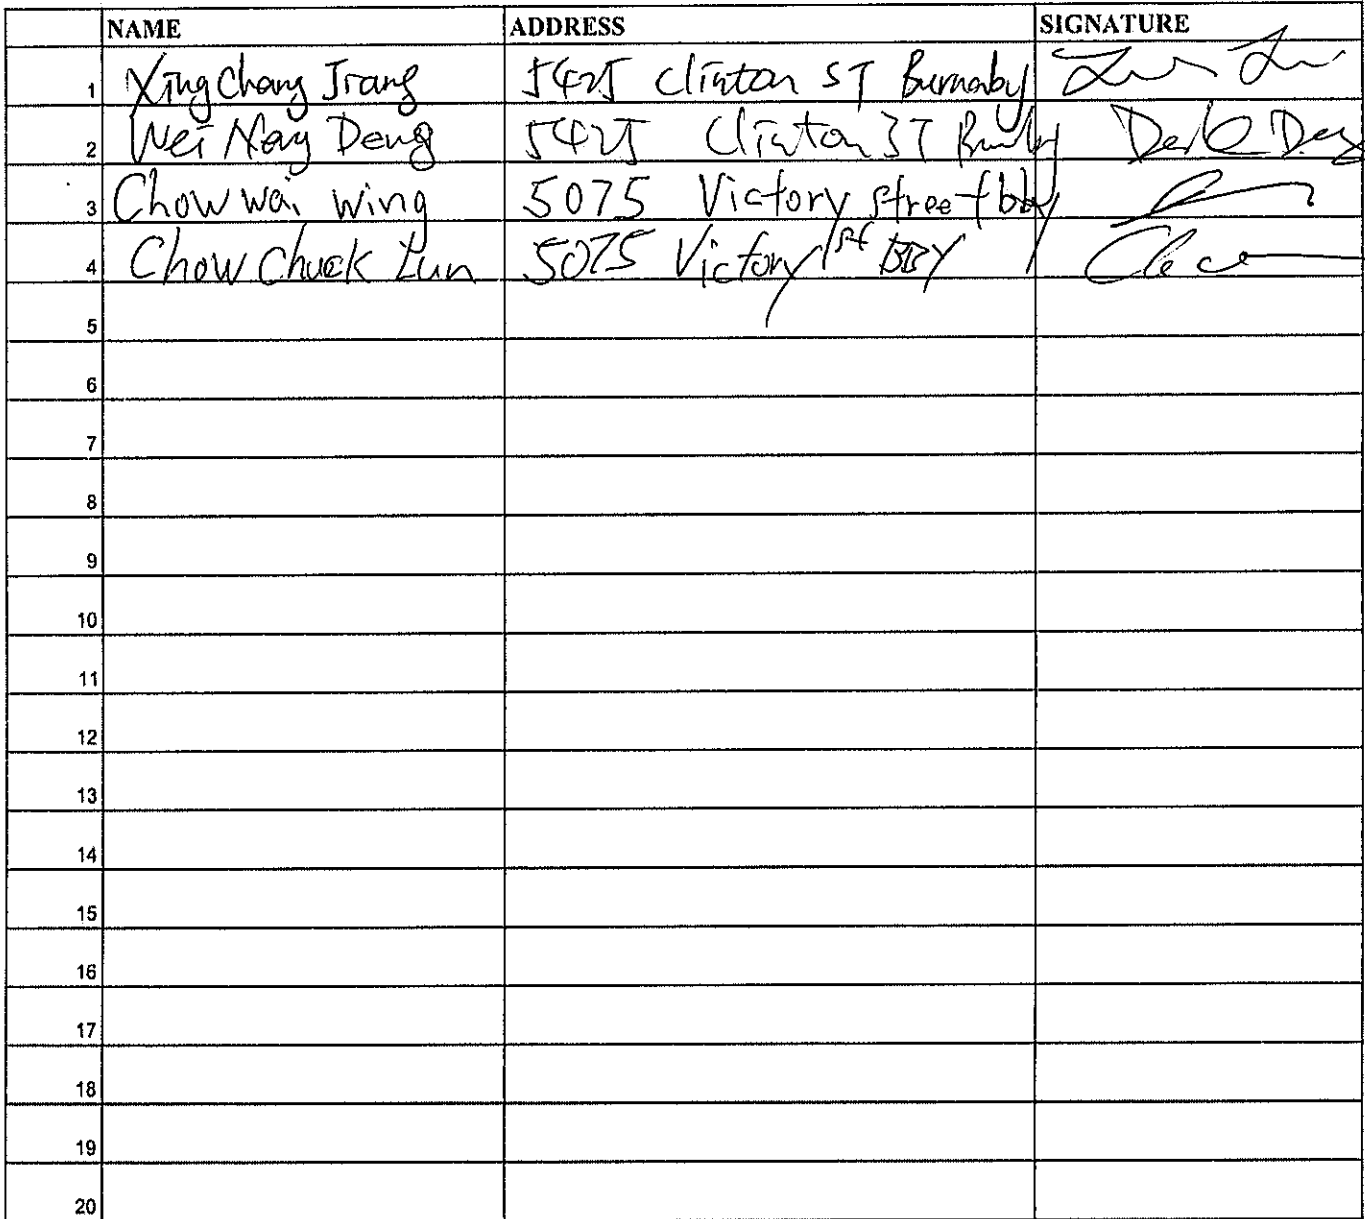 NAME ADDRESS SIGNATURE
1 Xing Chang Jiang 5425 Clinton ST Burnaby
2 Wei Deng 5425 Clinton ST
3 Chow wai wing 5075 Victory street bby
4 Chow Chuck Lun 5075 Victory st BBY
5
6
7
8
9
10
11
12
13
14
15
16
17
18
19
20